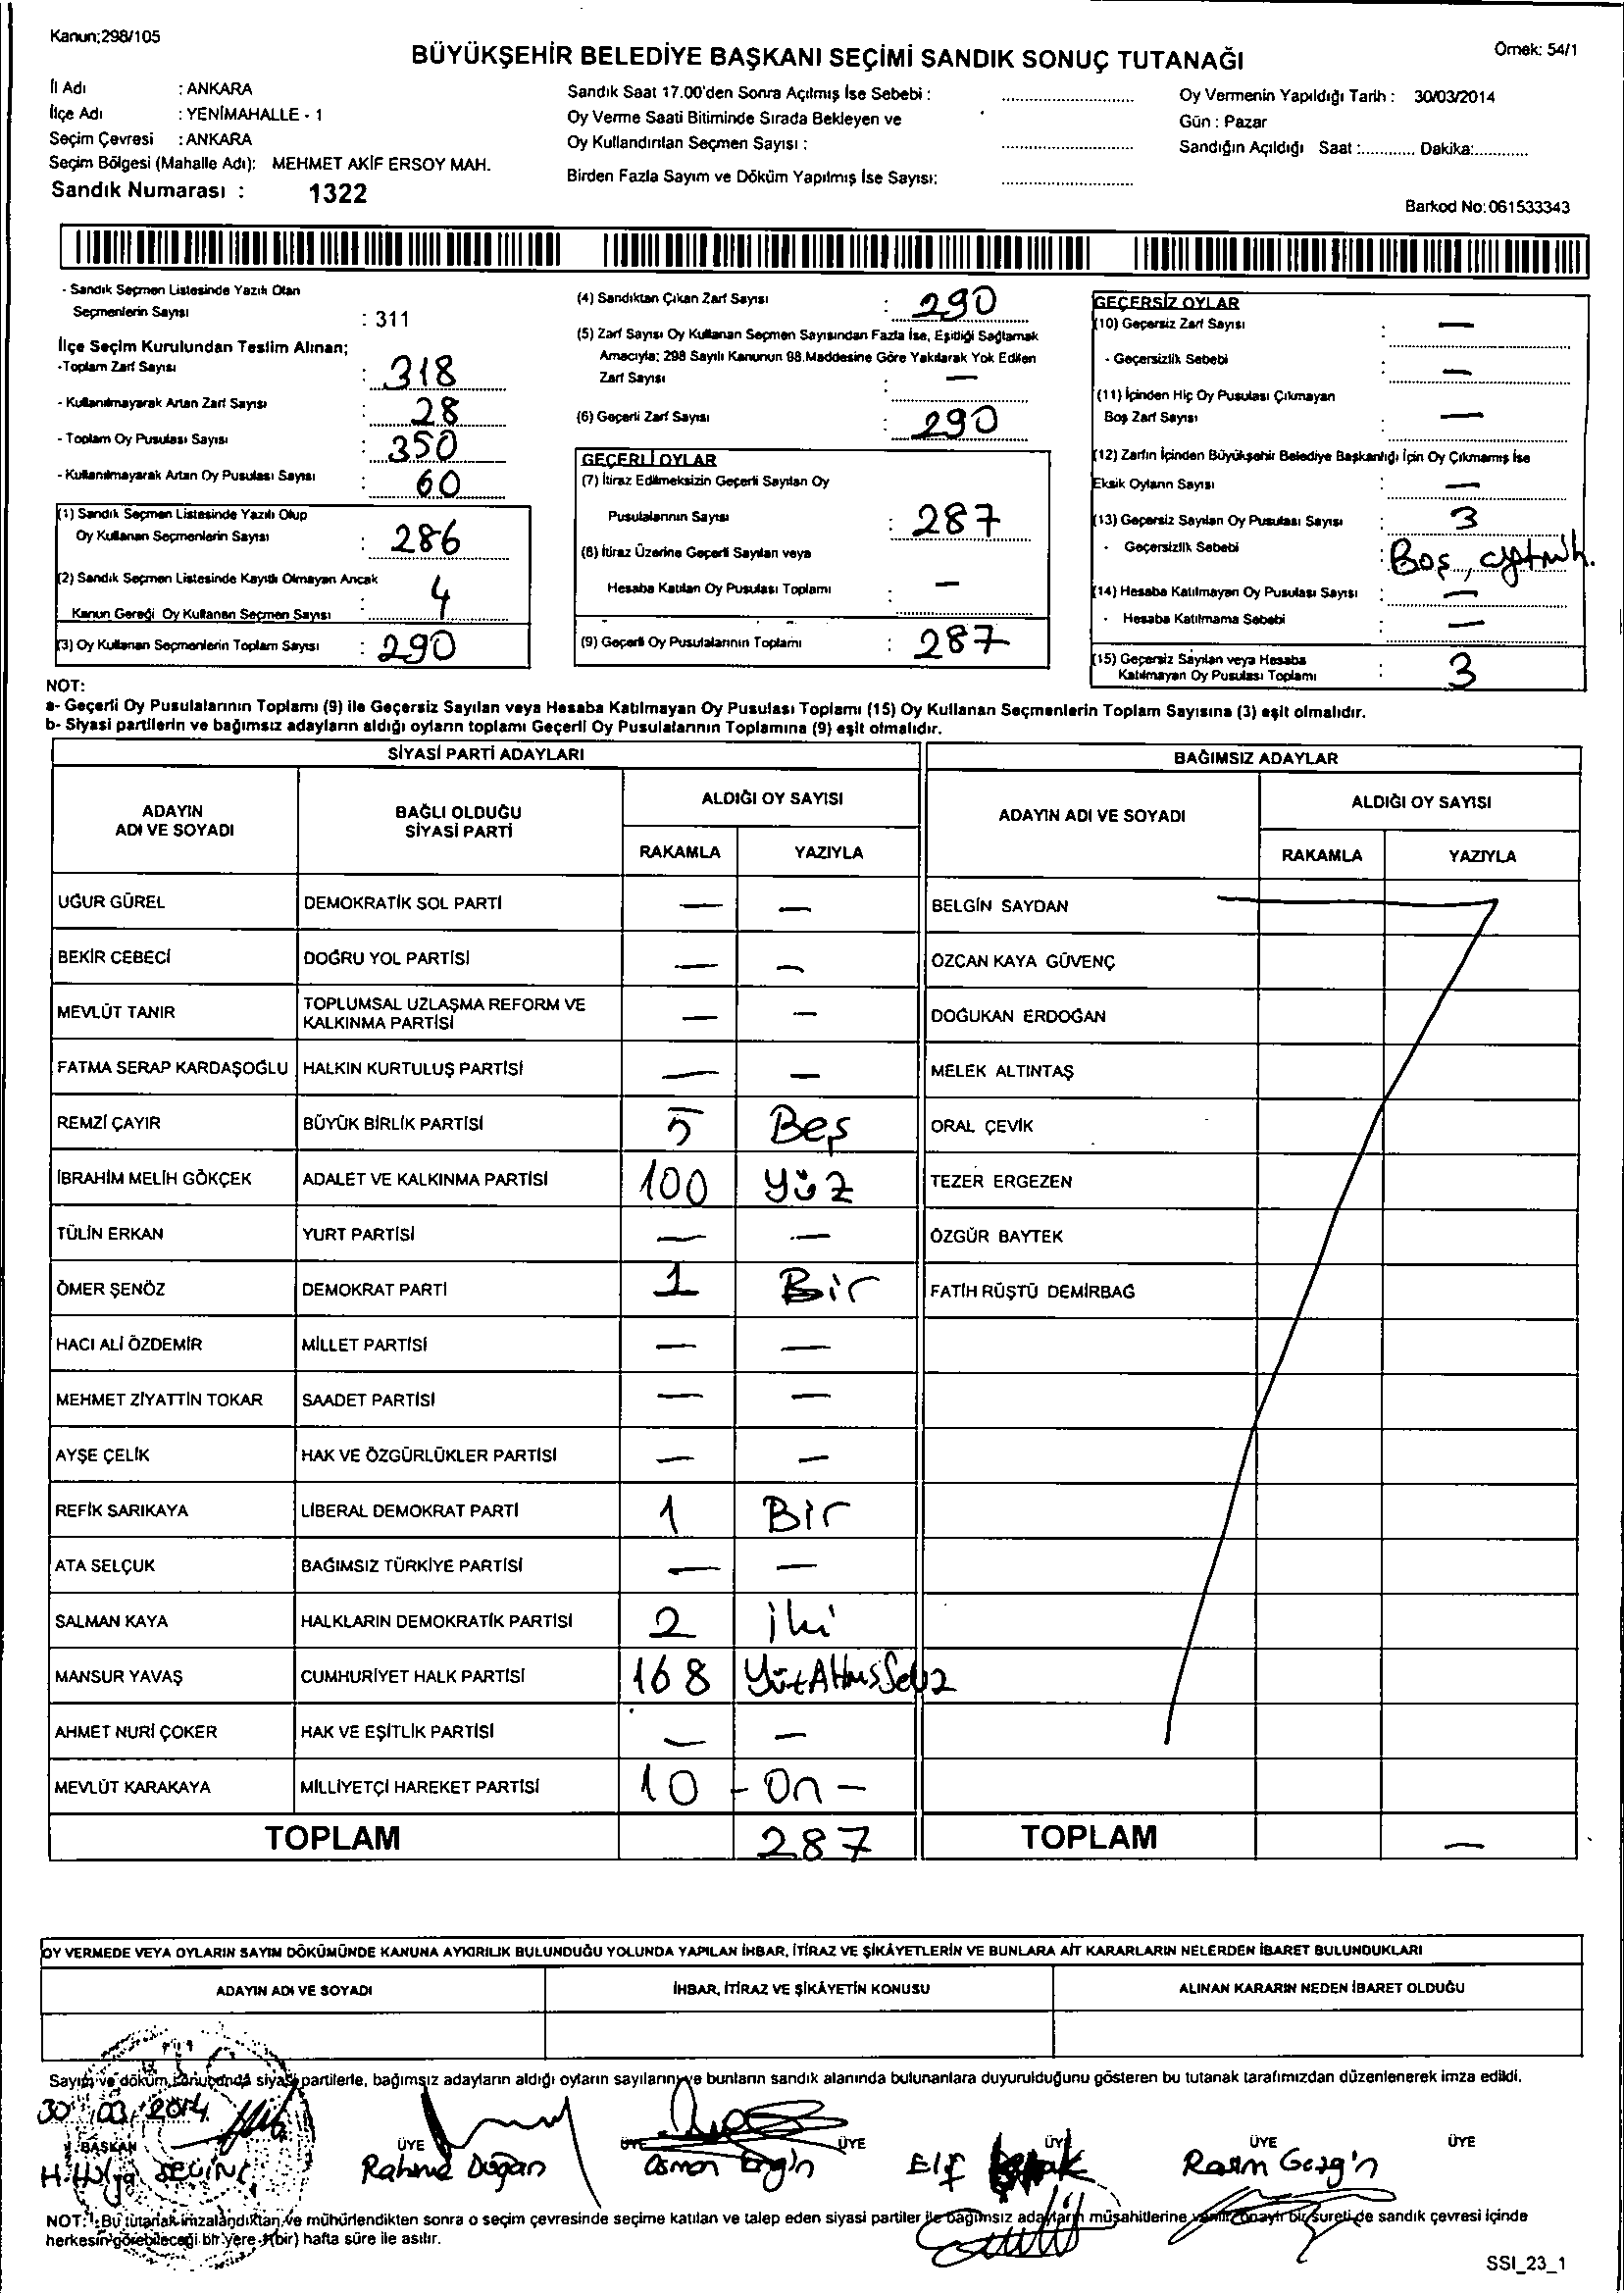 Kanun;298/105
BÜYÜKŞEHİR BELEDİYE BAŞKANI SEÇİMİ SANDIK SONUÇ TUTANAĞI
Örnek: 54/1
İl Adı : ANKARA
İlçe Adı : YENİMAHALLE - 1
Seçim Çevresi : ANKARA
Seçim Bölgesi (Mahalle Adı): MEHMET AKİF ERSOY MAH.
Sandık Numarası : 1322
Sandık Saat 17.00'den Sonra Açılmış İse Sebebi :
Oy Verme Saati Bitiminde Sırada Bekleyen ve
Oy Kullandırılan Seçmen Sayısı :
Birden Fazla Sayım ve Döküm Yapılmış İse Sayısı:
Oy Vermenin Yapıldığı Tarih : 30/03/2014
Gün : Pazar
Sandığın Açıldığı Saat :............ Dakika:............
Barkod No:061533343
- Sandık Seçmen Listesinde Yazılı Olan
Seçmenlerin Sayısı : 311
İlçe Seçim Kurulundan Teslim Alınan;
-Toplam Zarf Sayısı : 318
- Kullanılmayarak Artan Zarf Sayısı : 28
- Toplam Oy Pusulası Sayısı : 350
- Kullanılmayarak Artan Oy Pusulası Sayısı : 60
(1) Sandık Seçmen Listesinde Yazılı Olup
Oy Kullanan Seçmenlerin Sayısı : 286
(2) Sandık Seçmen Listesinde Kayıtlı Olmayan Ancak
Kanun Gereği Oy Kullanan Seçmen Sayısı : 4
(3) Oy Kullanan Seçmenlerin Toplam Sayısı : 290
(4) Sandıktan Çıkan Zarf Sayısı : 290
(5) Zarf Sayısı Oy Kullanan Seçmen Sayısından Fazla İse, Eşitliği Sağlamak
Amacıyla; 298 Sayılı Kanunun 98.Maddesine Göre Yakılarak Yok Edilen
Zarf Sayısı : —
(6) Geçerli Zarf Sayısı : 290
GEÇERLİ OYLAR
(7) İtiraz Edilmeksizin Geçerli Sayılan Oy
Pusulalarının Sayısı : 287
(8) İtiraz Üzerine Geçerli Sayılan veya
Hesaba Katılan Oy Pusulası Toplamı : —
(9) Geçerli Oy Pusulalarının Toplamı : 287
GEÇERSİZ OYLAR
(10) Geçersiz Zarf Sayısı : —
- Geçersizlik Sebebi : —
(11) İçinden Hiç Oy Pusulası Çıkmayan
Boş Zarf Sayısı : —
(12) Zarfın İçinden Büyükşehir Belediye Başkanlığı İçin Oy Çıkmamış İse
Eksik Oyların Sayısı : —
(13) Geçersiz Sayılan Oy Pusulası Sayısı : 3
- Geçersizlik Sebebi : Boş,
(14) Hesaba Katılmayan Oy Pusulası Sayısı : —
- Hesaba Katılmama Sebebi : —
(15) Geçersiz Sayılan veya Hesaba
Katılmayan Oy Pusulası Toplamı : 3
NOT:
a- Geçerli Oy Pusulalarının Toplamı (9) ile Geçersiz Sayılan veya Hesaba Katılmayan Oy Pusulası Toplamı (15) Oy Kullanan Seçmenlerin Toplam Sayısına (3) eşit olmalıdır.
b- Siyasi partilerin ve bağımsız adayların aldığı oyların toplamı Geçerli Oy Pusulalarının Toplamına (9) eşit olmalıdır.
SİYASİ PARTİ ADAYLARI
BAĞIMSIZ ADAYLAR
ADAYIN ADI VE SOYADI
BAĞLI OLDUĞU SİYASİ PARTİ
ALDIĞI OY SAYISI
RAKAMLA YAZIYLA
ADAYIN ADI VE SOYADI
ALDIĞI OY SAYISI
RAKAMLA YAZIYLA
UĞUR GÜREL DEMOKRATİK SOL PARTİ — — BELGİN SAYDAN
BEKİR CEBECİ DOĞRU YOL PARTİSİ — — ÖZCAN KAYA GÜVENÇ
MEVLÜT TANIR TOPLUMSAL UZLAŞMA REFORM VE KALKINMA PARTİSİ — — DOĞUKAN ERDOĞAN
FATMA SERAP KARDAŞOĞLU HALKIN KURTULUŞ PARTİSİ — — MELEK ALTINTAŞ
REMZİ ÇAYIR BÜYÜK BİRLİK PARTİSİ 5 Beş ORAL ÇEVİK
İBRAHİM MELİH GÖKÇEK ADALET VE KALKINMA PARTİSİ 100 yüz TEZER ERGEZEN
TÜLİN ERKAN YURT PARTİSİ — — ÖZGÜR BAYTEK
ÖMER ŞENÖZ DEMOKRAT PARTİ 1 Bir FATİH RÜŞTÜ DEMİRBAĞ
HACI ALİ ÖZDEMİR MİLLET PARTİSİ — —
MEHMET ZİYATTİN TOKAR SAADET PARTİSİ — —
AYŞE ÇELİK HAK VE ÖZGÜRLÜKLER PARTİSİ — —
REFİK SARIKAYA LİBERAL DEMOKRAT PARTİ 1 Bir
ATA SELÇUK BAĞIMSIZ TÜRKİYE PARTİSİ — —
SALMAN KAYA HALKLARIN DEMOKRATİK PARTİSİ 2 iki
MANSUR YAVAŞ CUMHURİYET HALK PARTİSİ 168
AHMET NURİ ÇOKER HAK VE EŞİTLİK PARTİSİ — —
MEVLÜT KARAKAYA MİLLİYETÇİ HAREKET PARTİSİ 10 - On -
TOPLAM 287 TOPLAM —
OY VERMEDE VEYA OYLARIN SAYIM DÖKÜMÜNDE KANUNA AYKIRILIK BULUNDUĞU YOLUNDA YAPILAN İHBAR, İTİRAZ VE ŞİKÂYETLERİN VE BUNLARA AİT KARARLARIN NELERDEN İBARET BULUNDUKLARI
ADAYIN ADI VE SOYADI İHBAR, İTİRAZ VE ŞİKÂYETİN KONUSU ALINAN KARARIN NEDEN İBARET OLDUĞU
Sayım ve döküm sonucunda siyasi partilerle, bağımsız adayların aldığı oyların sayılarını ve bunların sandık alanında bulunanlara duyurulduğunu gösteren bu tutanak tarafımızdan düzenlenerek imza edildi.
30/03/2014
BAŞKAN ÜYE ÜYE ÜYE ÜYE ÜYE ÜYE
H. Hülya SEVİNÇ Rahmi Doğan Osman Engin Elif Rasim Gezgin
NOT: Bu tutanak imzalandıktan ve mühürlendikten sonra o seçim çevresinde seçime katılan ve talep eden siyasi partiler ile bağımsız adayların müşahitlerine verilir. Onaylı bir sureti de sandık çevresi içinde
herkesin görebileceği bir yere 1(bir) hafta süre ile asılır.
SSI_23_1